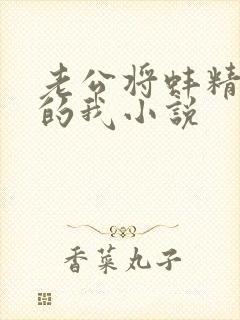 老公将蚌精
的我小说
香菜丸子